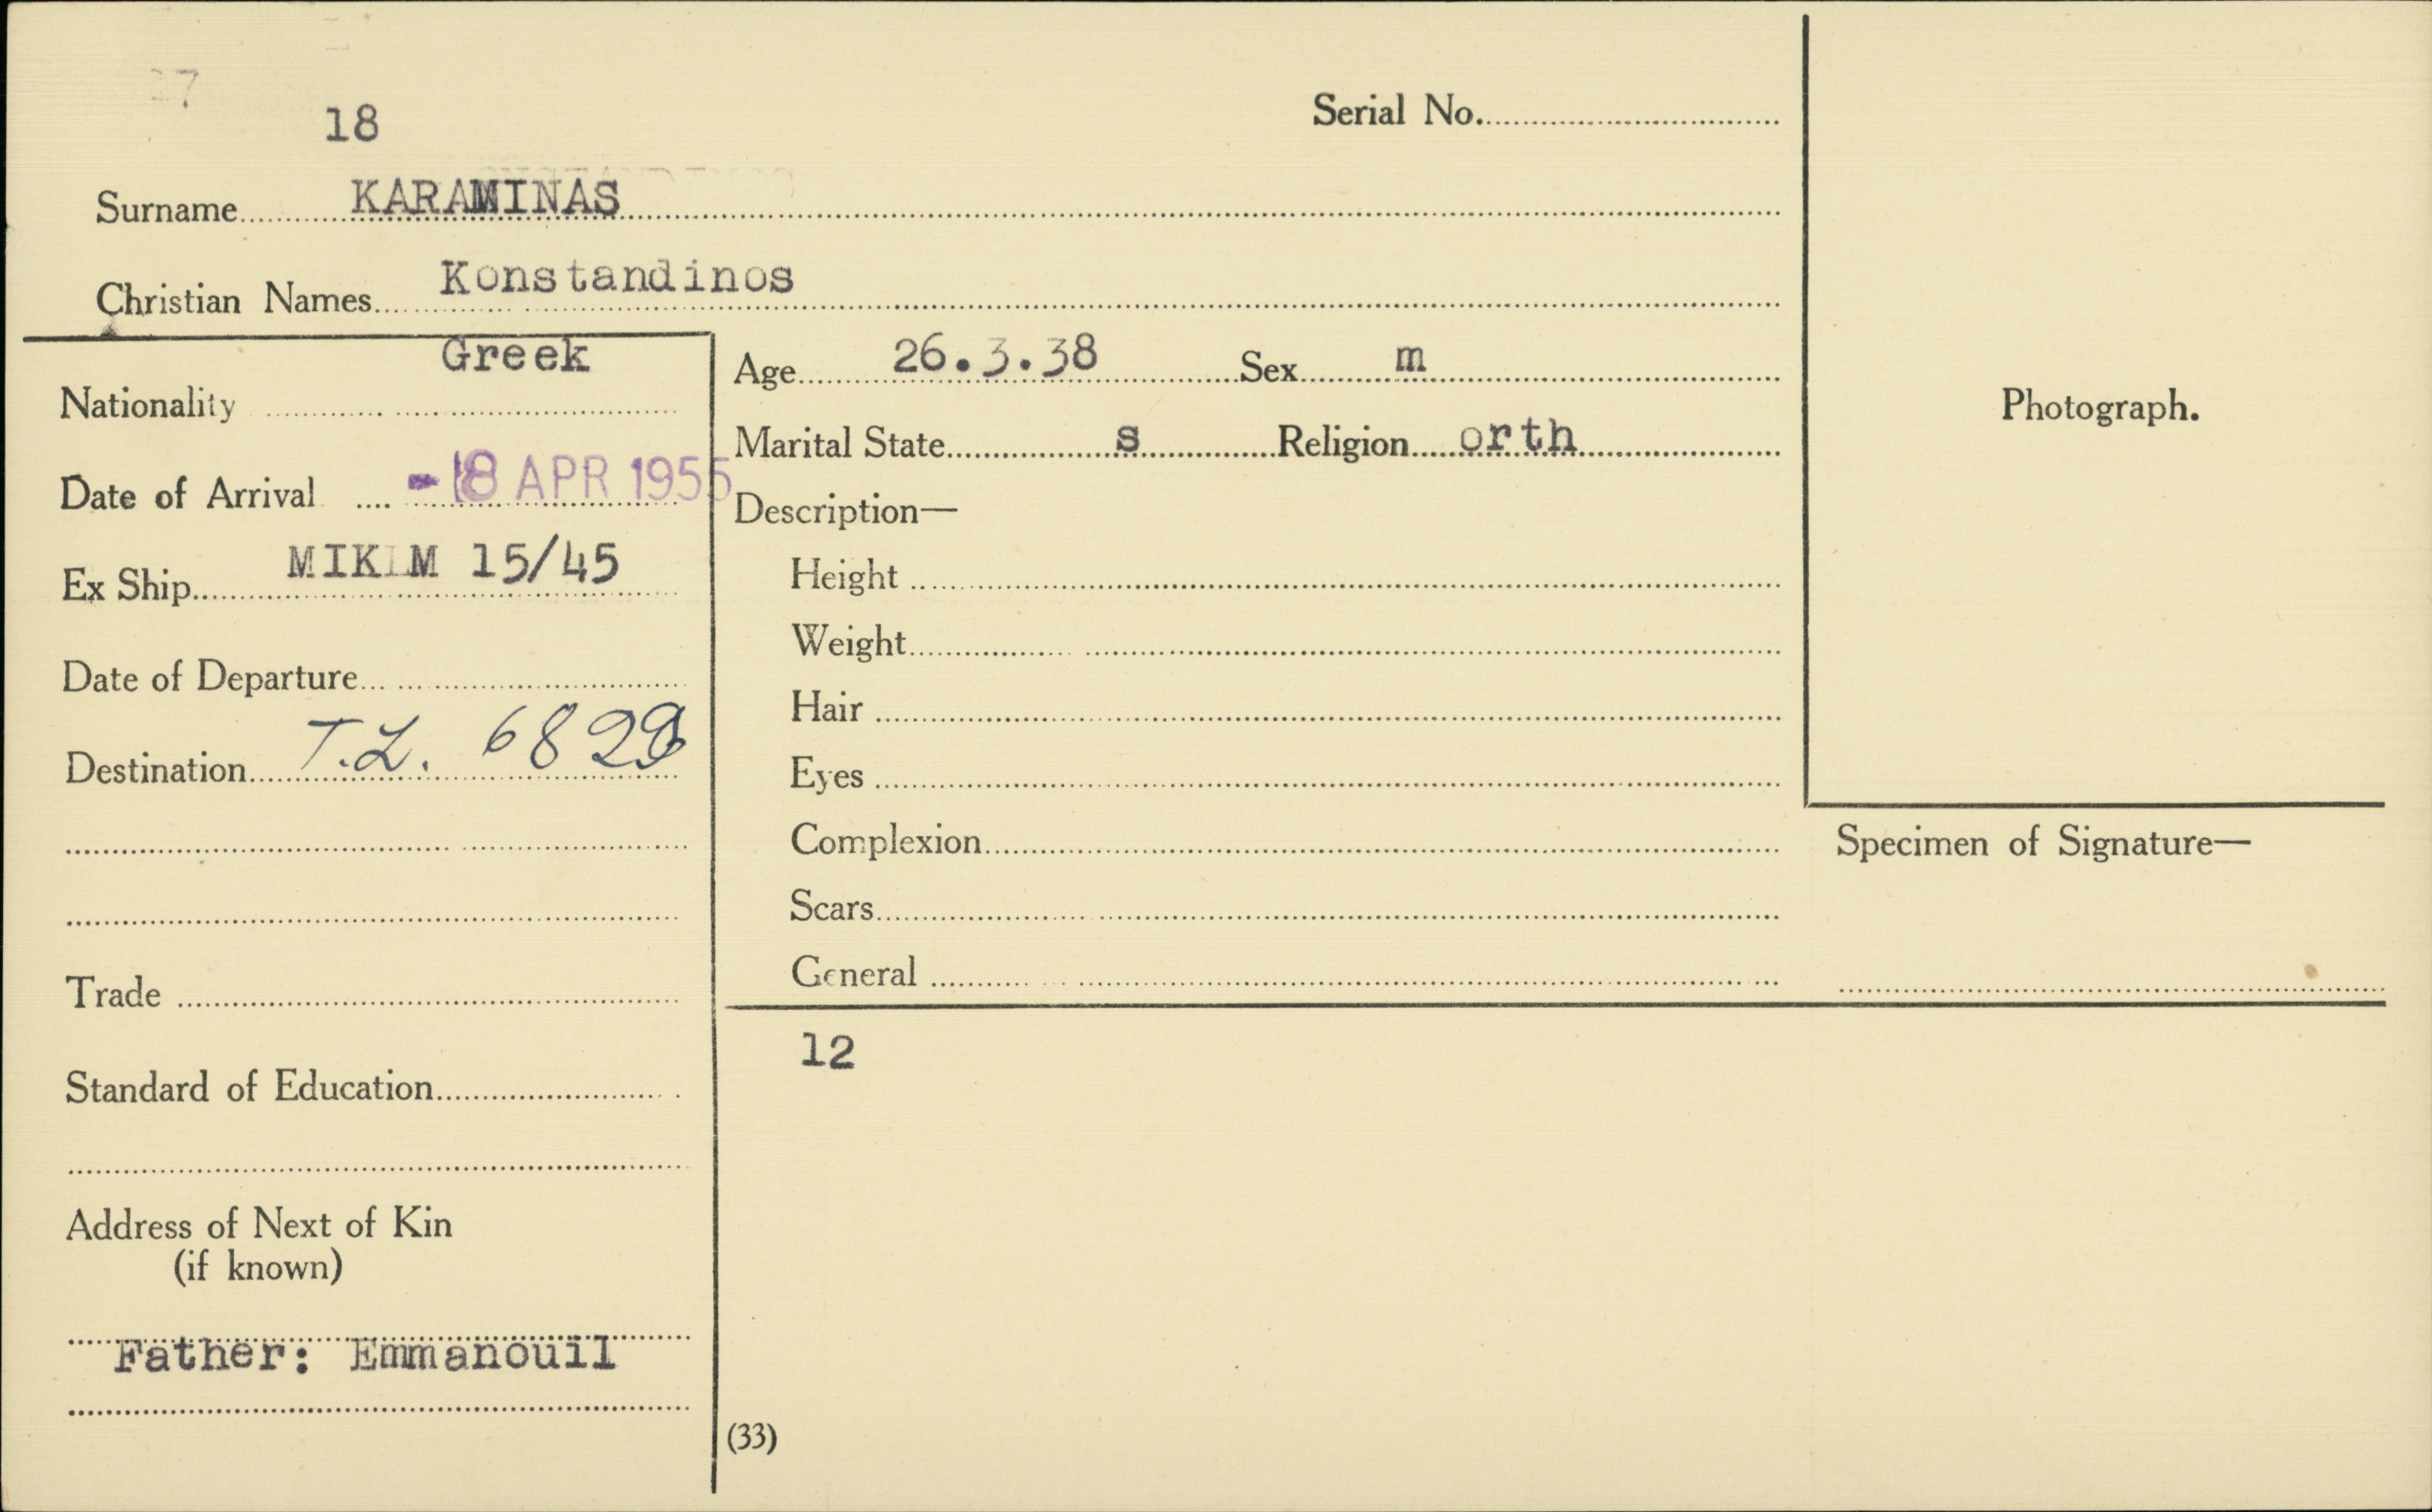 18
Serial No.
Surname KARAMINAS
Christian Names Konstandinos
Nationality Greek
Date of Arrival -18 APR 1955
Ex Ship MIK M 15/45
Date of Departure
Destination T.L. 6829
Trade
Standard of Education
Address of Next of Kin
(if known)
Father: Emmanouil
Age 26.3.38 Sex m
Marital State s Religion orth
Description—
Height
Weight
Hair
Eyes
Complexion
Scars
General
12
(33)
Photograph.
Specimen of Signature—